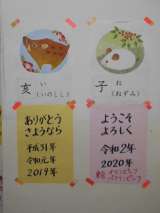 い
亥
(いのしし)
ありがとう
さようなら
平成31年
令和元年
2019年
ね
子
(ねずみ)
ようこそ
よろしく
令和2年
2020年
オリンピック
パラリンピック